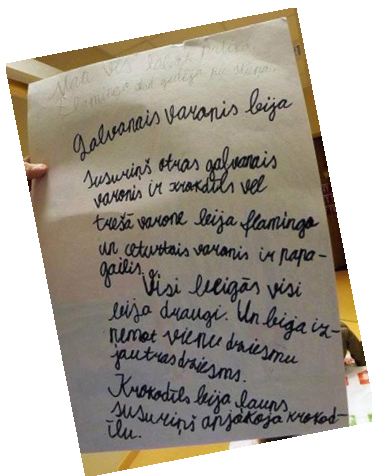 Man vis labāk patika
Flamingo
galvanais varonis bija
susuriņš otras galvanais
varonis ir krokodils vēl
trešā varone bija flamingo
un ceturtais varonis ir papa-
gailis.
Visi beigās visi
bija draugi. Un bija iz-
ņemot vienu dziesmu
jautras dziesms.
Krokodils bija ļauns
susuriņš apsākoja krokod-
īlu.